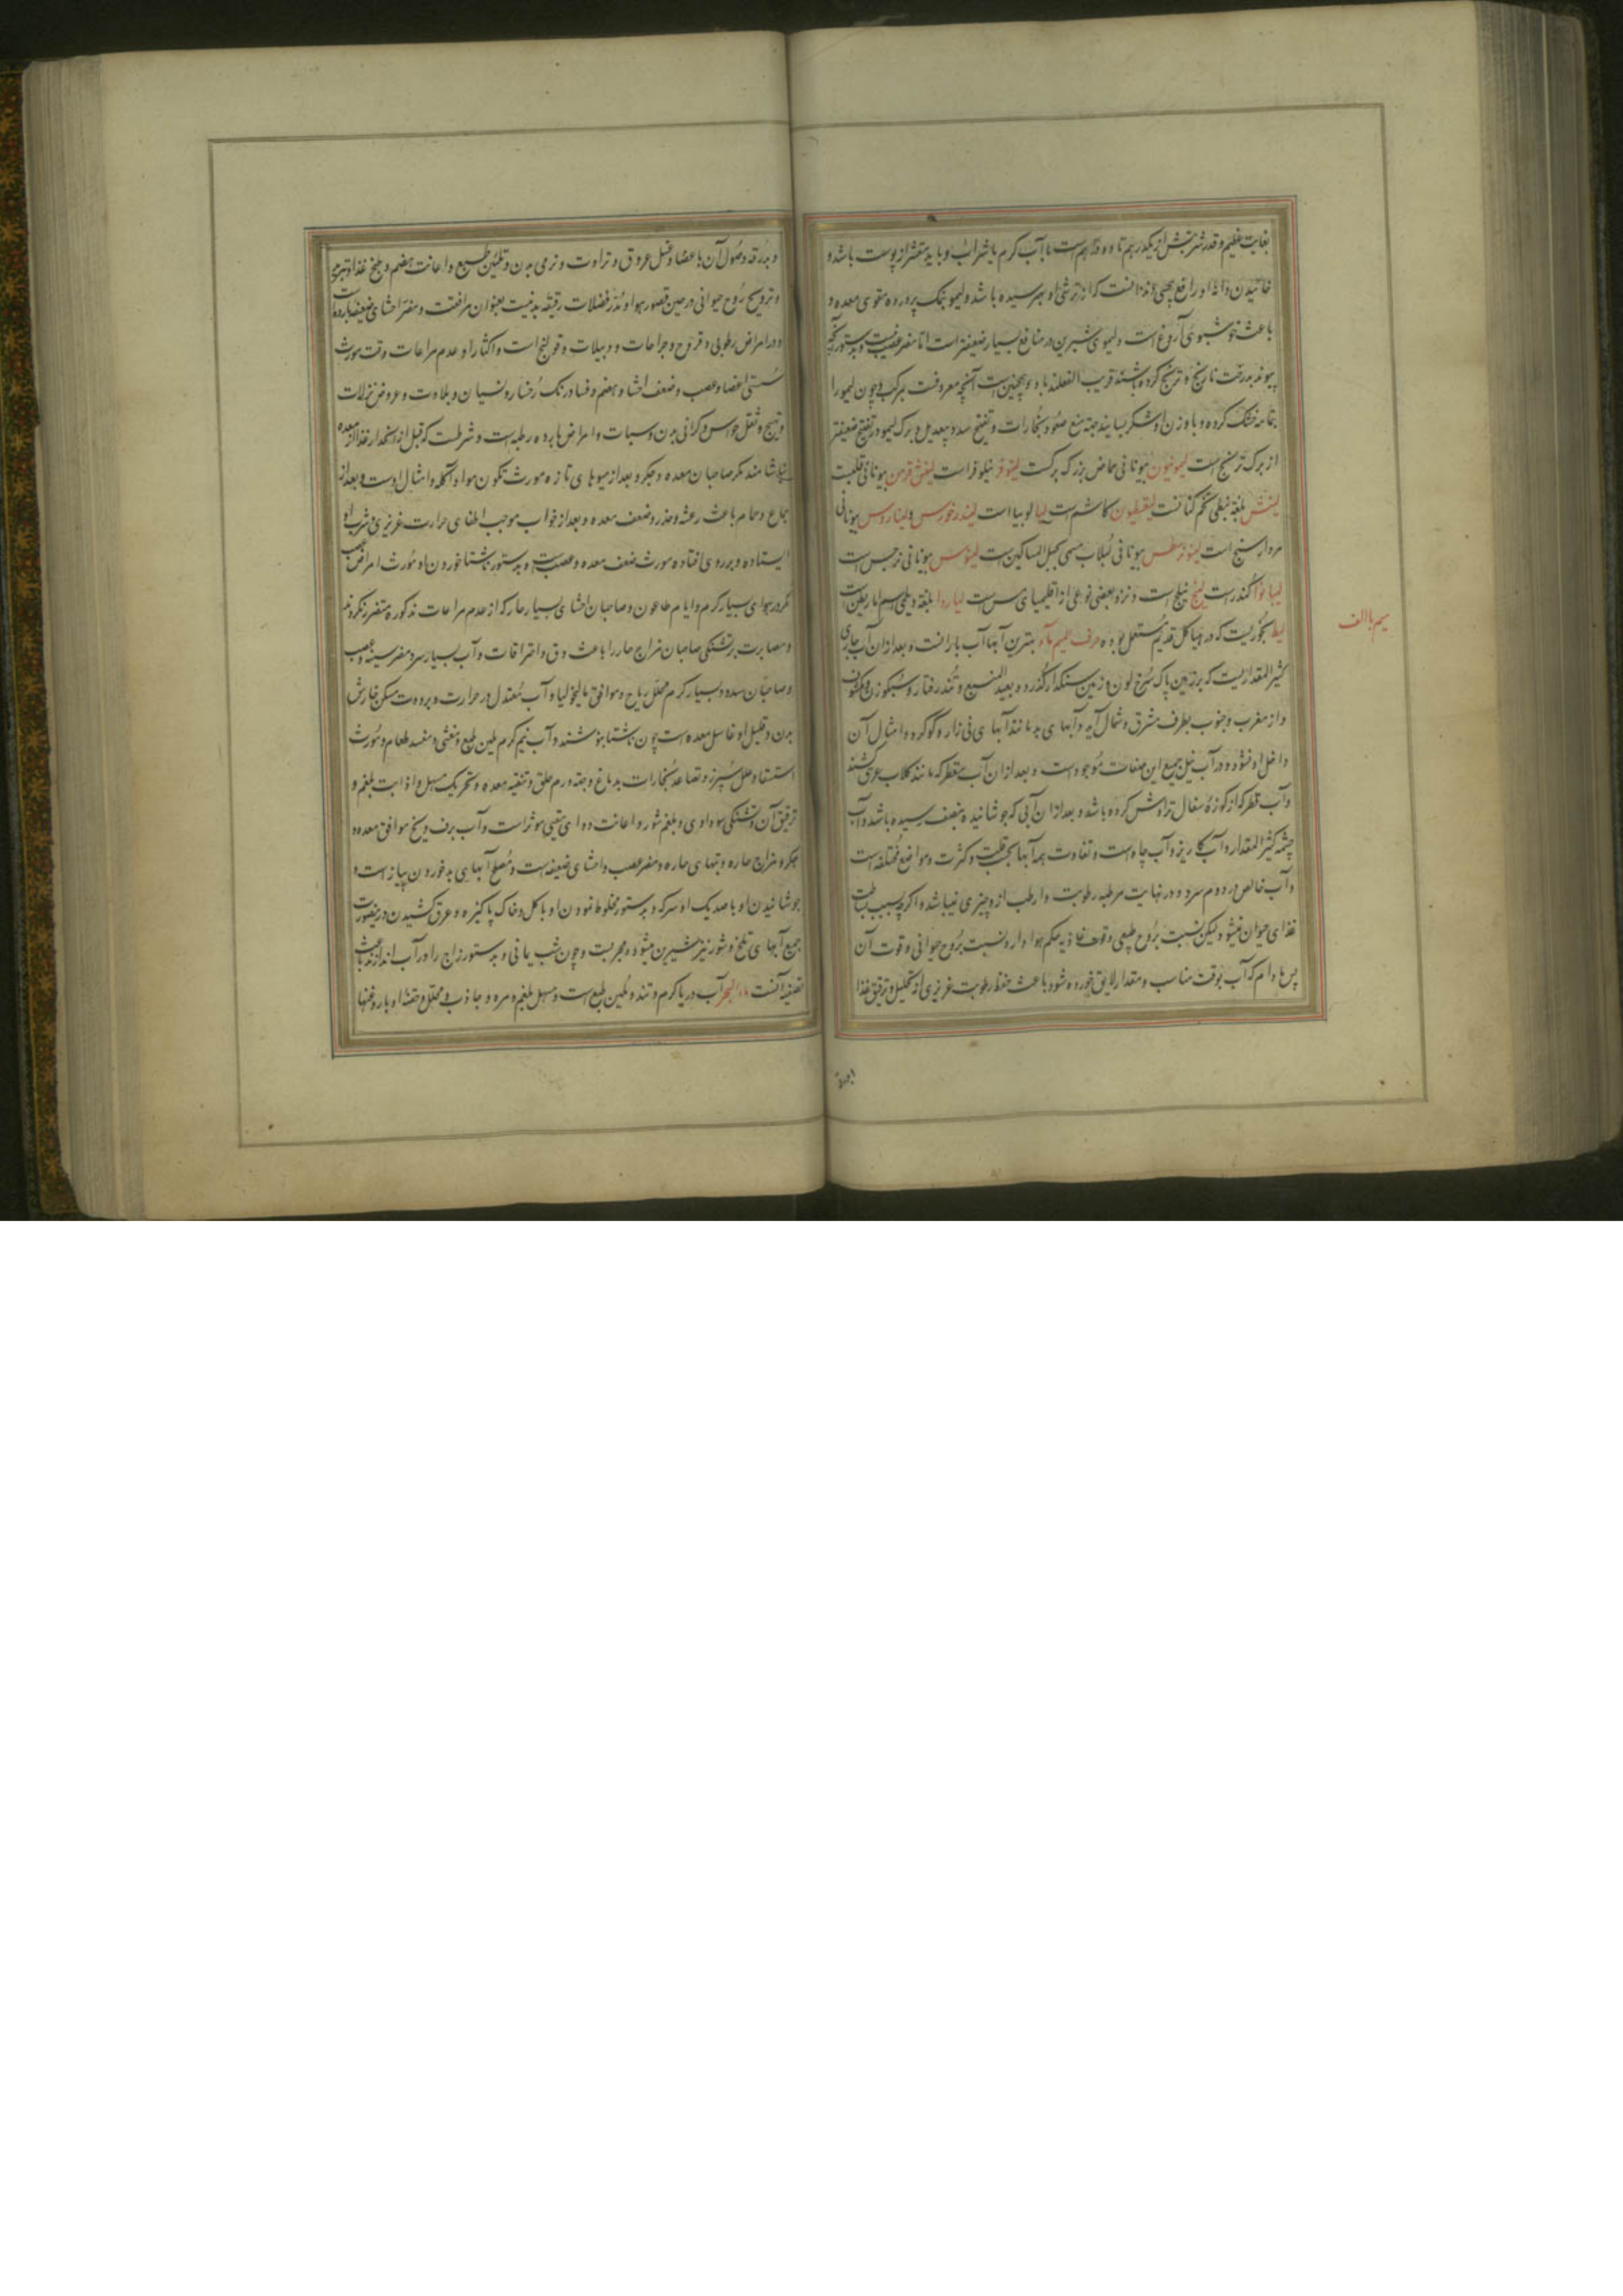 بغایت عظیم و قدر شربتش از یکدرهم تا دو درهم است با آب گرم یا شراب و باید مقشر از پوست باشد و
خائیدن دانهٔ او رافع کندی دندانست که از ترشی او بهم رسیده باشد و لیمو بنمک پرورده مقوی معده و
باعث خوشبوی آروغ است و لیموی شیرین در منافع بسیار ضعیفتر است اما مضر عصب نیست و بدستور آنچه
پیوند بدرخت نارنج و ترنج کرده باشند قریب الفعلند باو و همچنین است آنچه معروفست بمرکب و چون لیمو را
بتمامه خشک کرده و با وزن او شکر بسایند جهت منع صعود بخارات و تفتیح سدد بیعدیل و برک لیمو در تفتیح ضعیفتر
از برک ترنج است لیمونیون بیونانی حماض بزرک برکست لینوفر نیلوفر است بیونانی قلبت
بلغة نبطی تخم کتانست کاشم است لیبا لوبیا است بیونانی
مردارسنج است بیونانی لبلاب مسمی بحبل المساکین است بیونانی نرجس است
لیبانوا کندر است لینج نیلج است و نزد بعضی نوعی از اقلیمیای مس است لیاردا بلغة دیلمی اسم است
بخوریست که در هیاکل قدیم مستعمل بوده حرف المیم ماء بهترین آبها آب بارانست و بعد از آن آب جاری
کثیر المقداریست که بر زمین پاک سرخ لون و زمین سنکدار گذرد و بعید المنبع و تند رفتار و سبکوزن و مکشوف
و از مغرب و جنوب بطرف مشرق و شمال آید و آبهای بد مانند آبهای نی زار و گوگرد و امثال آن
داخل او نشود و در آب نیل جمیع این صفات موجود است و بعد از آن آب مقطر که مانند گلاب عرق کشند
و آب قطر که از کوزهٔ سفال تراوش کرده باشد و بعد از آن آبی که جوشانیده بنصف رسیده باشد و آب
چشمه کثیر المقدار و آب کاریز و آب چاه است و تفاوت همه آبها بحسب قلت و کثرت و مواضع مختلفه است
و آب خالص در دوم سرد و در نهایت مرتبه رطوبت و ارطب ازو چیزی نمیباشد و اگرچه بسبب بساطت
غذای حیوان نمیشود لیکن نسبت بروح طبیعی و قوت غاذیه حکم هوا دارد نسبت بروح حیوانی و قوت آن
پس مادام که آب بوقت مناسب و مقدار لایق خورده شود باعث حفظ رطوبت غریزی از تحلیل و ترقیق غذا
میم با الف
و بدرقه وصول آن باعضا و غسل عروق و تراوت و نرمی بدن و تلیین طبیع و اعانت هضم و طبخ غذا و تبرید
و ترویح روح حیوانی در حین قصور هوا و مدر فضلات رقیقه بدنیست بعنوان مرافقت و مضر احشای ضعیفه بارده است
و در امراض رطوبی و قروح و جراحات و دبیلات و قولنج است و اکثار او عدم مراعات وقت مورث
سستی اعضا و عصب و ضعف احشا و هضم و فساد رنک رخسار و نسیان و بلادت و عروض نزلات
و تهیج و ثقل حواس و کرانی بدن و سبات و امراض بارده رطبه است و شرطست که قبل از انحدار غذا از معده
نیاشامند مکر صاحبان معده و جکر و بعد از میوهای تازه مورث تکون مواد آکله و امثال اوست و بعد از
جماع و حمام باعث رعشه و خدر و ضعف معده و بعد از خواب موجب اطفای حرارت غریزی و شرب او
ایستاده و بر روی افتاده مورث ضعف معده و عصب است و بدستور ناشتا خوردن او مورث امراض عصب
مکر در هوای بسیار گرم و ایام طاعون و صاحبان احشای بسیار حار که از عدم مراعات مذکوره متضرر نکردند
و مصابرت بر تشنگی صاحبان مزاج حار را باعث دق و احتراقات و آب بسیار سرد مضر سینه و عصب
و صاحبان سده و بسیار گرم محلل ریاح و موافق مالیخولیا و آب معتدل در حرارت و برودت مسکن خارش
بدن و قلیل او غاسل معده است چون ناشتا بنوشند و آب نیم گرم ملین طبع و مغثی و مفسد طعام و مورث
استسقا و علل سپرز و تصاعد بخارات بدماغ و جهت ورم حلق و تنقیه معده و تحریک مسهل و اذابت بلغم و
ترقیق آن و تشنگی سوداوی و بلغم شور و اعانت دوای مقیی مؤثر است و آب برف و یخ موافق معده و
جکر و مزاج حاره و تبهای حاره و مضر عصب و احشای ضعیفه است و مصلح آبهای بد خوردن پیاز است و
جوشانیدن او با صد یک او سرکه و بدستور مخلوط نمودن او با کل و خاک پاکیزه و عرق کشیدن در اینصورت
جمیع آبهای تلخ و شور نیز شیرین میشود و مجربست و چون شب یمانی و بدستور زاج را در آب اندازند باعث
تصفیه آنست ماء البحر آب دریا گرم و تند و ملین طبع است و مسهل بلغم و مره و جاذب و محلل و حقنهٔ او با روغنها